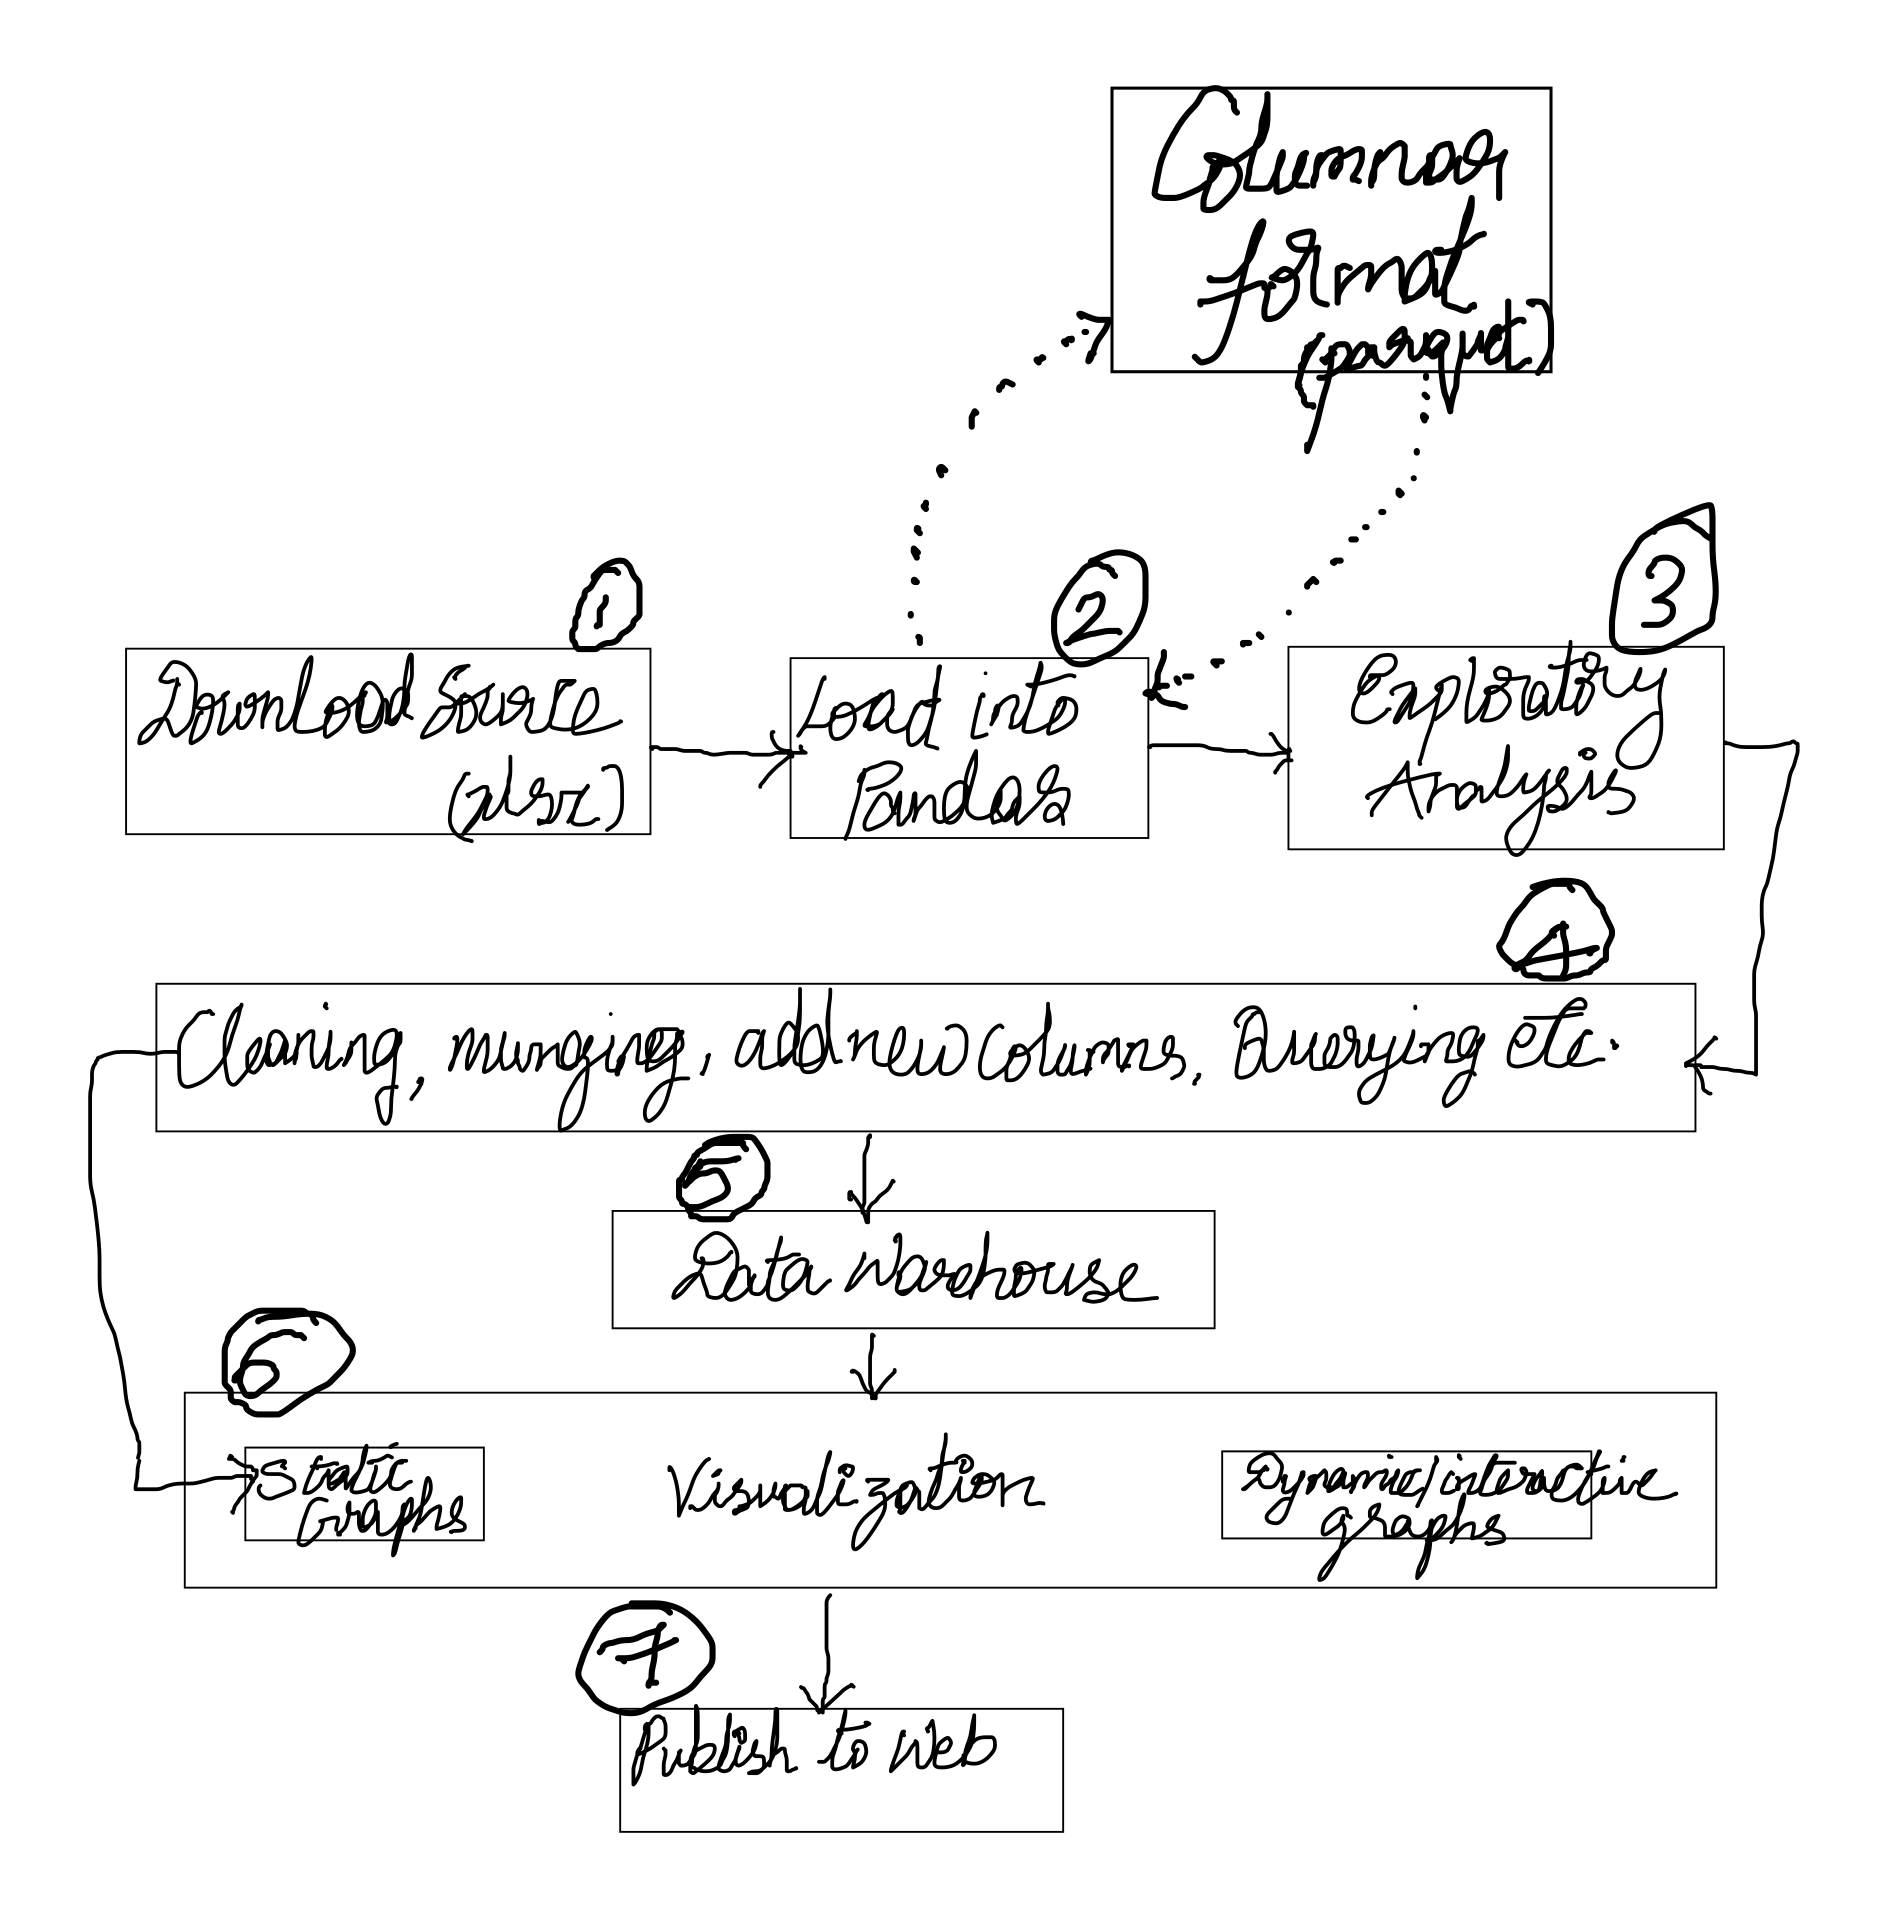 Columnar
format
(parquet)
1
2
3
Download Source
Load into
Pandas
Exploratory
Analysis
4
Cleaning, munging, add new columns, Querying etc.
5
Data Warehouse
6
Static
maps
Visualization
Dynamic/interactive
graphs
7
Publish to Web